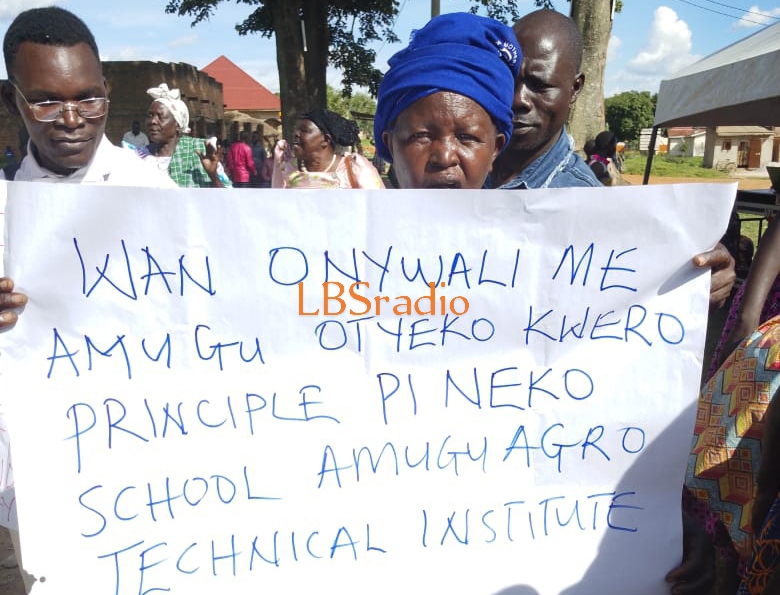 WAN ONYWALI ME
LBSradio
AMUGU OTYEKO KWERO
PRINCIPLE PI NEKO
SCHOOL AMUGU AGRO
TECHNICAL INSTITUTE